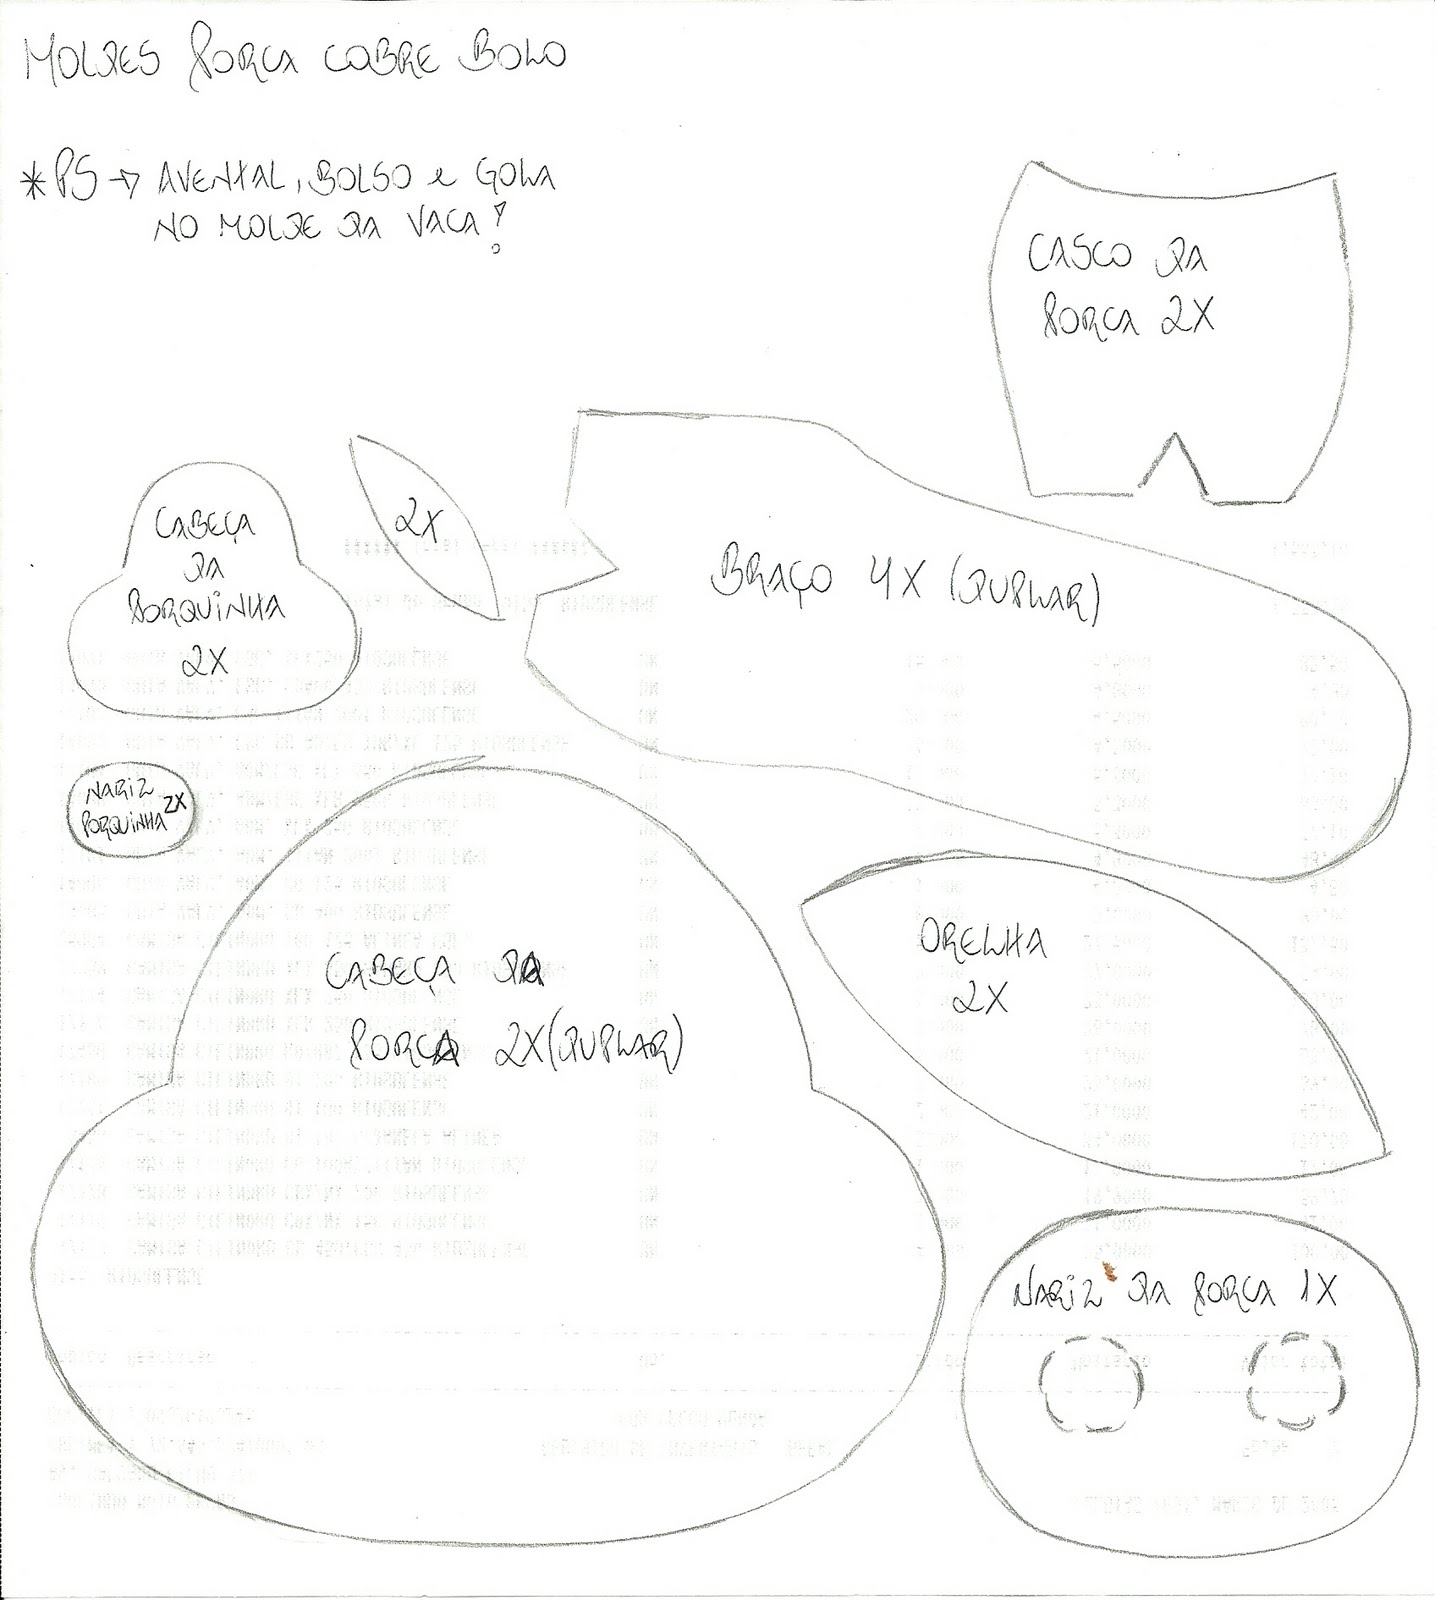 MOLDES PORCA COBRE BOLO
*PS → AVENTAL, BOLSO e GOLA
NO MOLDE DA VACA!
CASCO DA
PORCA 2X
CABEÇA
DA
PORQUINHA
2X
2X
BRAÇO 4X (DUPLAR)
NARIZ
PORQUINHA 2X
ORELHA
2X
CABEÇA DA
PORCA 2X (DUPLAR)
NARIZ DA PORCA 1X